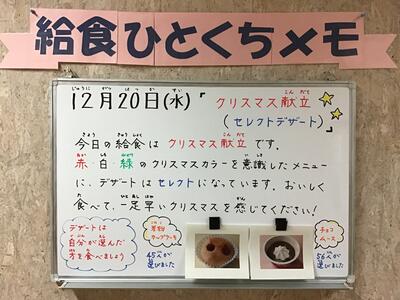 給食ひとくちメモ
12月20日(水)「クリスマス献立
(セレクトデザート)
今日の給食はクリスマス献立です。
赤・白・緑のクリスマスカラーを意識したメニュー
に、デザートはセレクトになっています。おいしく
食べて、一足早いクリスマスを感じてください!
デザートは
自分が選んだ
方を食べましょう
米粉
カップケーキ
45人が
選びました
チョコ
ムース
56人が
選びました